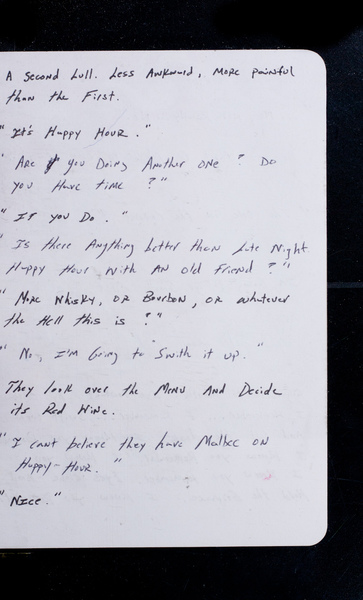 A Second Lull. Less Awkward, More painful
than the First.
"It's Happy Hour."
"Are you Doing Another one? Do
you Have time?"
"If you Do."
"Is there Anything better than Late Night
Happy Hour with AN old Friend?"
"More Whisky, OR Bourbon, OR whatever
the Hell this is?"
"No, I'm Going to Swith it up."
They look over the Menu AND Decide
its Red Wine.
"I cant believe they have Malbec ON
Happy-Hour."
"Nice."